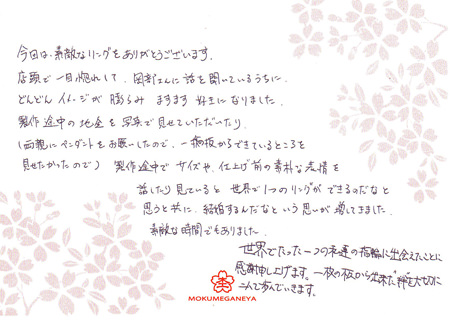 今日は、素敵なリングをありがとうございます。
店頭で一目惚れして、岡部さんに話を聞いているうちに、
どんどんイメージが膨らみ ますます好きになりました。
製作途中の地金を写真で見せていただいたり、
(両親にペンダントをお願いしたので、一枚板からできているところを
見せたかったので) 製作途中でサイズや、仕上げ前の素朴な表情を
話したり見ていると 世界で1つのリングができるのだなと
思うと共に、結婚するんだなという思いが増してきました。
素敵な時間でもありました。
世界でたった一つの木目の指輪に出会えたことに
感謝申し上げます。一枚の板から出来た"絆"を大切に
二人で歩んでいきます。
MOKUMEGANEYA